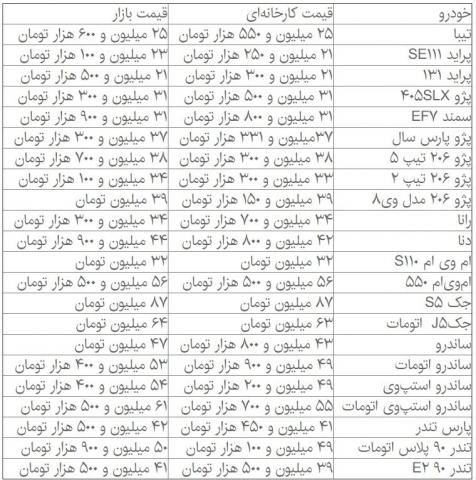 خودرو قیمت کارخانه‌ای قیمت بازار
تیبا ۲۵ میلیون و ۵۵۰ هزار تومان ۲۵ میلیون و ۶۰۰ هزار تومان
پراید SE۱۱۱ ۲۱ میلیون و ۲۵۰ هزار تومان ۲۳ میلیون و ۱۰۰ هزار تومان
پراید ۱۳۱ ۲۱ میلیون و ۳۰۰ هزار تومان ۲۱ میلیون و ۵۰۰ هزار تومان
پژو ۴۰۵SLX ۳۱ میلیون و ۵۰۰ هزار تومان ۳۱ میلیون و ۳۰۰ هزار تومان
سمند EF۷ ۳۱ میلیون و ۸۰۰ هزار تومان ۳۱ میلیون و ۹۰۰ هزار تومان
پژو پارس سال ۳۷میلیون و ۳۳۱ هزار تومان ۳۷ میلیون و ۳۰۰ هزار تومان
پژو ۲۰۶ تیپ ۵ ۳۸ میلیون و ۳۰۰ هزار تومان ۳۸ میلیون و ۷۰۰ هزار تومان
پژو ۲۰۶ تیپ ۲ ۳۳ میلیون و ۳۰۰ هزار تومان ۳۴ میلیون و ۱۰۰ هزار تومان
پژو ۲۰۶ مدل وی۸ ۳۹ میلیون و ۱۵۰ هزار تومان ۳۹ میلیون تومان
رانا ۳۴ میلیون و ۷۰۰ هزار تومان ۳۴ میلیون و ۳۰۰ هزار تومان
دنا ۴۲ میلیون و ۸۰۰ هزار تومان ۴۴ میلیون و ۹۰۰ هزار تومان
ام وی ام S۱۱۰ ۳۲ میلیون تومان ۳۲ میلیون تومان
ام‌وی‌ام ۵۵۰ ۵۶ میلیون و ۵۰۰ هزار تومان ۵۶ میلیون و ۵۰۰ هزار تومان
جک S۵ ۸۷ میلیون تومان ۸۷ میلیون تومان
جکJ۵ اتومات ۶۳ میلیون تومان ۶۴ میلیون تومان
ساندرو ۴۳ میلیون و ۸۰۰ هزار تومان ۴۷ میلیون تومان
ساندرو اتومات ۴۹ میلیون و ۹۰۰ هزار تومان ۵۳ میلیون و ۴۰۰ هزار تومان
ساندرو استپ‌وی ۴۹ میلیون و ۲۰۰ هزار تومان ۵۴ میلیون و ۴۰۰ هزار تومان
ساندرو استپ‌وی اتومات ۵۵ میلیون و ۷۰۰ هزار تومان ۶۱ میلیون و ۵۰۰ هزار تومان
پارس تندر ۴۱ میلیون و ۴۵۰ هزار تومان ۴۲ میلیون و ۵۰۰ هزار تومان
تندر ۹۰ پلاس اتومات ۴۹ میلیون و ۱۰۰ هزار تومان ۵۰ میلیون و ۹۰۰ هزار تومان
تندر ۹۰ E۲ ۳۹ میلیون و ۵۰۰ هزار تومان ۴۱ میلیون و ۵۰۰ هزار تومان